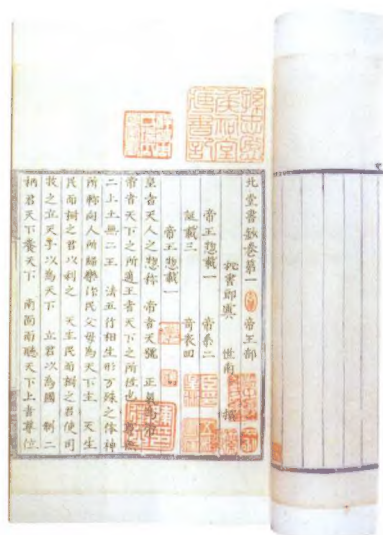 孫忠愍侯祠堂藏書記
北堂書鈔卷第一 帝王部
秘書郎虞 世南 撰
帝王惣載一 帝系二
誕載三 奇表四
帝王惣載一
皇者天人之惣称 帝者天號 正氣為帝
帝者天下之所適王者天下之所往也 尊無
二上土無二王 清五行相生形万殊之体神
所称向人所歸樂作民父母為天下主 天生
民而樹之君以利之 天生民而樹之君使司
牧之立天子以為天下 立君以為國 制二
柄君天下養天下 南面而聽天下上者尊位